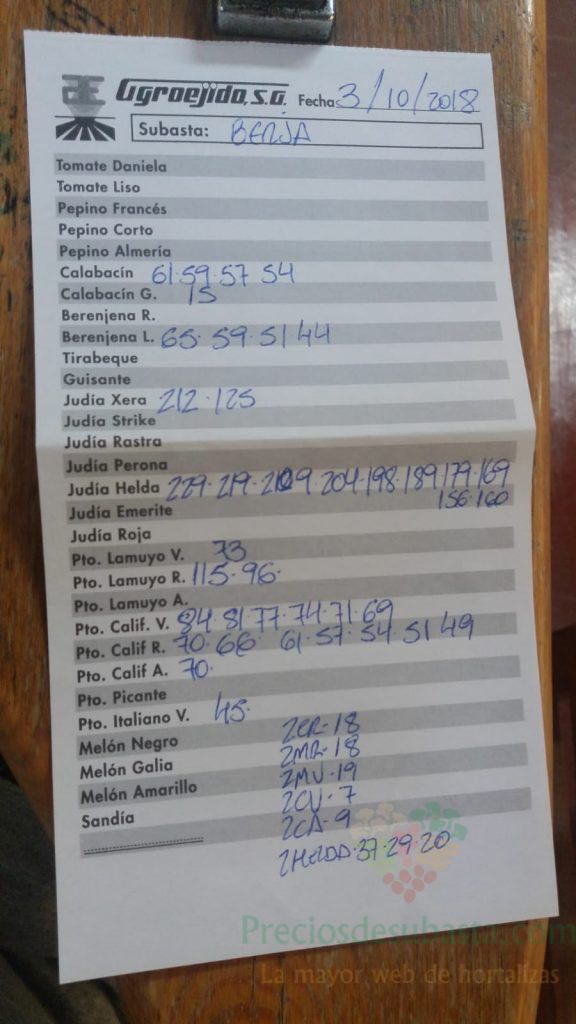 Agroejido, S.A. Fecha: 3/10/2018
Subasta: BERJA
Tomate Daniela
Tomate Liso
Pepino Francés
Pepino Corto
Pepino Almería
Calabacín 61·59·57 54
Calabacín G. 15
Berenjena R.
Berenjena L. 65·59·51 44
Tirabeque
Guisante
Judía Xera 212·125
Judía Strike
Judía Rastra
Judía Perona
Judía Helda 229·219·209·204·198·189 179·169
Judía Emerite 156·160
Judía Roja
Pto. Lamuyo V. 73
Pto. Lamuyo R. 115·96·
Pto. Lamuyo A.
Pto. Calif. V. 84·81 77·74·71·69
Pto. Calif R. 70·66 61·57·54·51 49
Pto. Calif A. 70·
Pto. Picante
Pto. Italiano V. 45·
Melón Negro 2CR-18
Melón Galia 2MR-18
Melón Amarillo 2MV-19
Sandía 2CV-7
2CA-9
2HELDA·37·29·20
Preciosdesubasta.com
La mayor web de hortalizas